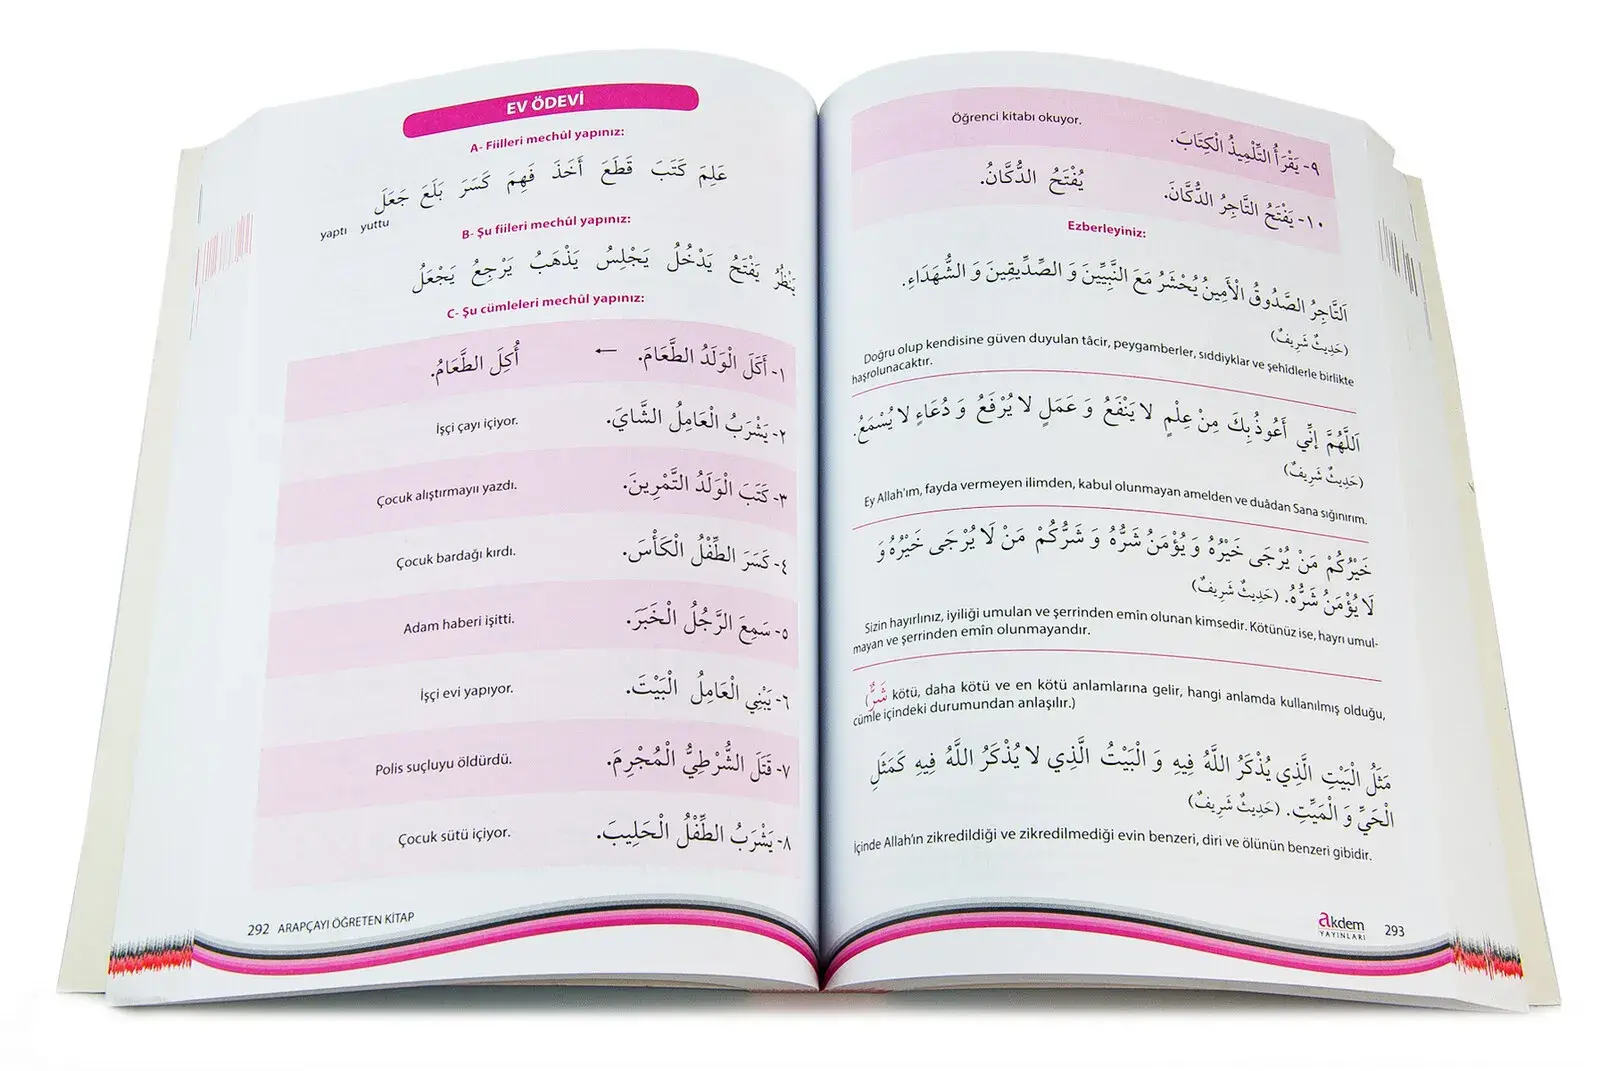 EV ÖDEVİ
A- Fiilleri mechûl yapınız:
عَلِمَ كَتَبَ قَطَعَ أَخَذَ فَهِمَ كَسَرَ بَلَعَ جَعَلَ
yaptı yuttu
B- Şu fiileri mechûl yapınız:
يَنْظُرُ يَفْتَحُ يَدْخُلُ يَجْلِسُ يَذْهَبُ يَرْجِعُ يَجْعَلُ
C- Şu cümleleri mechûl yapınız:
١- أَكَلَ الْوَلَدُ الطَّعَامَ. ← أُكِلَ الطَّعَامُ.
٢- يَشْرَبُ الْعَامِلُ الشَّايَ. İşçi çayı içiyor.
٣- كَتَبَ الْوَلَدُ التَّمْرِينَ. Çocuk alıştırmayıı yazdı.
٤- كَسَرَ الطِّفْلُ الْكَأْسَ. Çocuk bardağı kırdı.
٥- سَمِعَ الرَّجُلُ الْخَبَرَ. Adam haberi işitti.
٦- يَبْنِي الْعَامِلُ الْبَيْتَ. İşçi evi yapıyor.
٧- قَتَلَ الشُّرْطِيُّ الْمُجْرِمَ. Polis suçluyu öldürdü.
٨- يَشْرَبُ الطِّفْلُ الْحَلِيبَ. Çocuk sütü içiyor.
292 ARAPÇAYI ÖĞRETEN KİTAP
٩- يَقْرَأُ التِّلْمِيذُ الْكِتَابَ. Öğrenci kitabı okuyor.
١٠- يَفْتَحُ التَّاجِرُ الدُّكَّانَ. يُفْتَحُ الدُّكَّانُ.
Ezberleyiniz:
اَلتَّاجِرُ الصَّدُوقُ الْأَمِينُ يُحْشَرُ مَعَ النَّبِيِّينَ وَ الصِّدِّيقِينَ وَ الشُّهَدَاءِ.
(حَدِيثٌ شَرِيفٌ)
Doğru olup kendisine güven duyulan tâcir, peygamberler, sıddiyklar ve şehîdlerle birlikte
haşrolunacaktır.
اَللَّهُمَّ إِنِّي أَعُوذُ بِكَ مِنْ عِلْمٍ لا يَنْفَعُ وَ عَمَلٍ لا يُرْفَعُ وَ دُعَاءٍ لا يُسْمَعُ.
(حَدِيثٌ شَرِيفٌ)
Ey Allah'ım, fayda vermeyen ilimden, kabul olunmayan amelden ve duâdan Sana sığınırım.
خَيْرُكُمْ مَنْ يُرْجَى خَيْرُهُ وَ يُؤْمَنُ شَرُّهُ وَ شَرُّكُمْ مَنْ لَا يُرْجَى خَيْرُهُ وَ
لَا يُؤْمَنُ شَرُّهُ. (حَدِيثٌ شَرِيفٌ)
Sizin hayırlınız, iyiliği umulan ve şerrinden emîn olunan kimsedir. Kötünüz ise, hayrı umul-
mayan ve şerrinden emîn olunmayandır.
(شَرٌّ kötü, daha kötü ve en kötü anlamlarına gelir, hangi anlamda kullanılmış olduğu,
cümle içindeki durumundan anlaşılır.)
مَثَلُ الْبَيْتِ الَّذِي يُذْكَرُ اللَّهُ فِيهِ وَ الْبَيْتُ الَّذِي لا يُذْكَرُ اللَّهُ فِيهِ كَمَثَلِ
الْحَيِّ وَ الْمَيِّتِ. (حَدِيثٌ شَرِيفٌ)
İçinde Allah'ın zikredildiği ve zikredilmediği evin benzeri, diri ve ölünün benzeri gibidir.
akdem
YAYINLARI
293